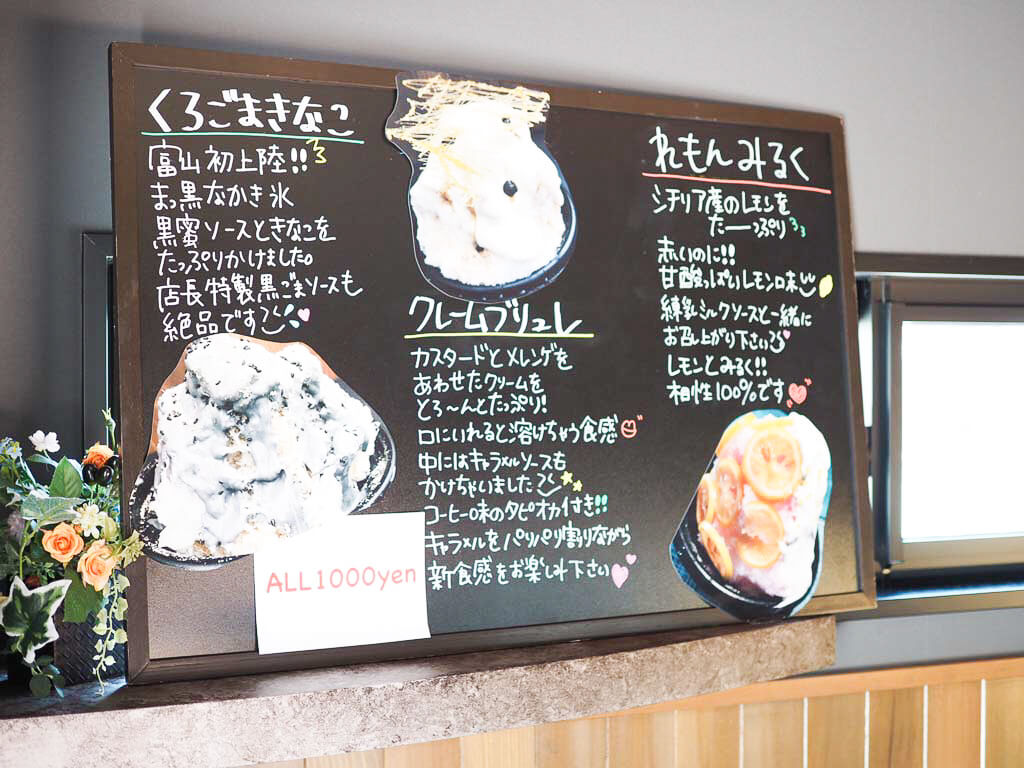 くろごまきなこ
富山初上陸!!
まっ黒なかき氷
黒蜜ソースときなこを
たっぷりかけました。
店長特製黒ごまソースも
絶品です
クレームブリュレ
カスタードとメレンゲを
あわせたクリームを
とろ〜んとたっぷり!
口にいれると溶けちゃう食感
中にはキャラメルソースも
かけちゃいました
コーヒー味のタピオカ付き!!
キャラメルをパリパリ割りながら
新食感をお楽しみ下さい
れもんみるく
シチリア産のレモンを
たーーっぷり
赤いのに!!
甘酸っぱいレモン味
練乳ミルクソースと一緒に
お召し上がり下さい
レモンとみるく!!
相性100%です
ALL1000yen